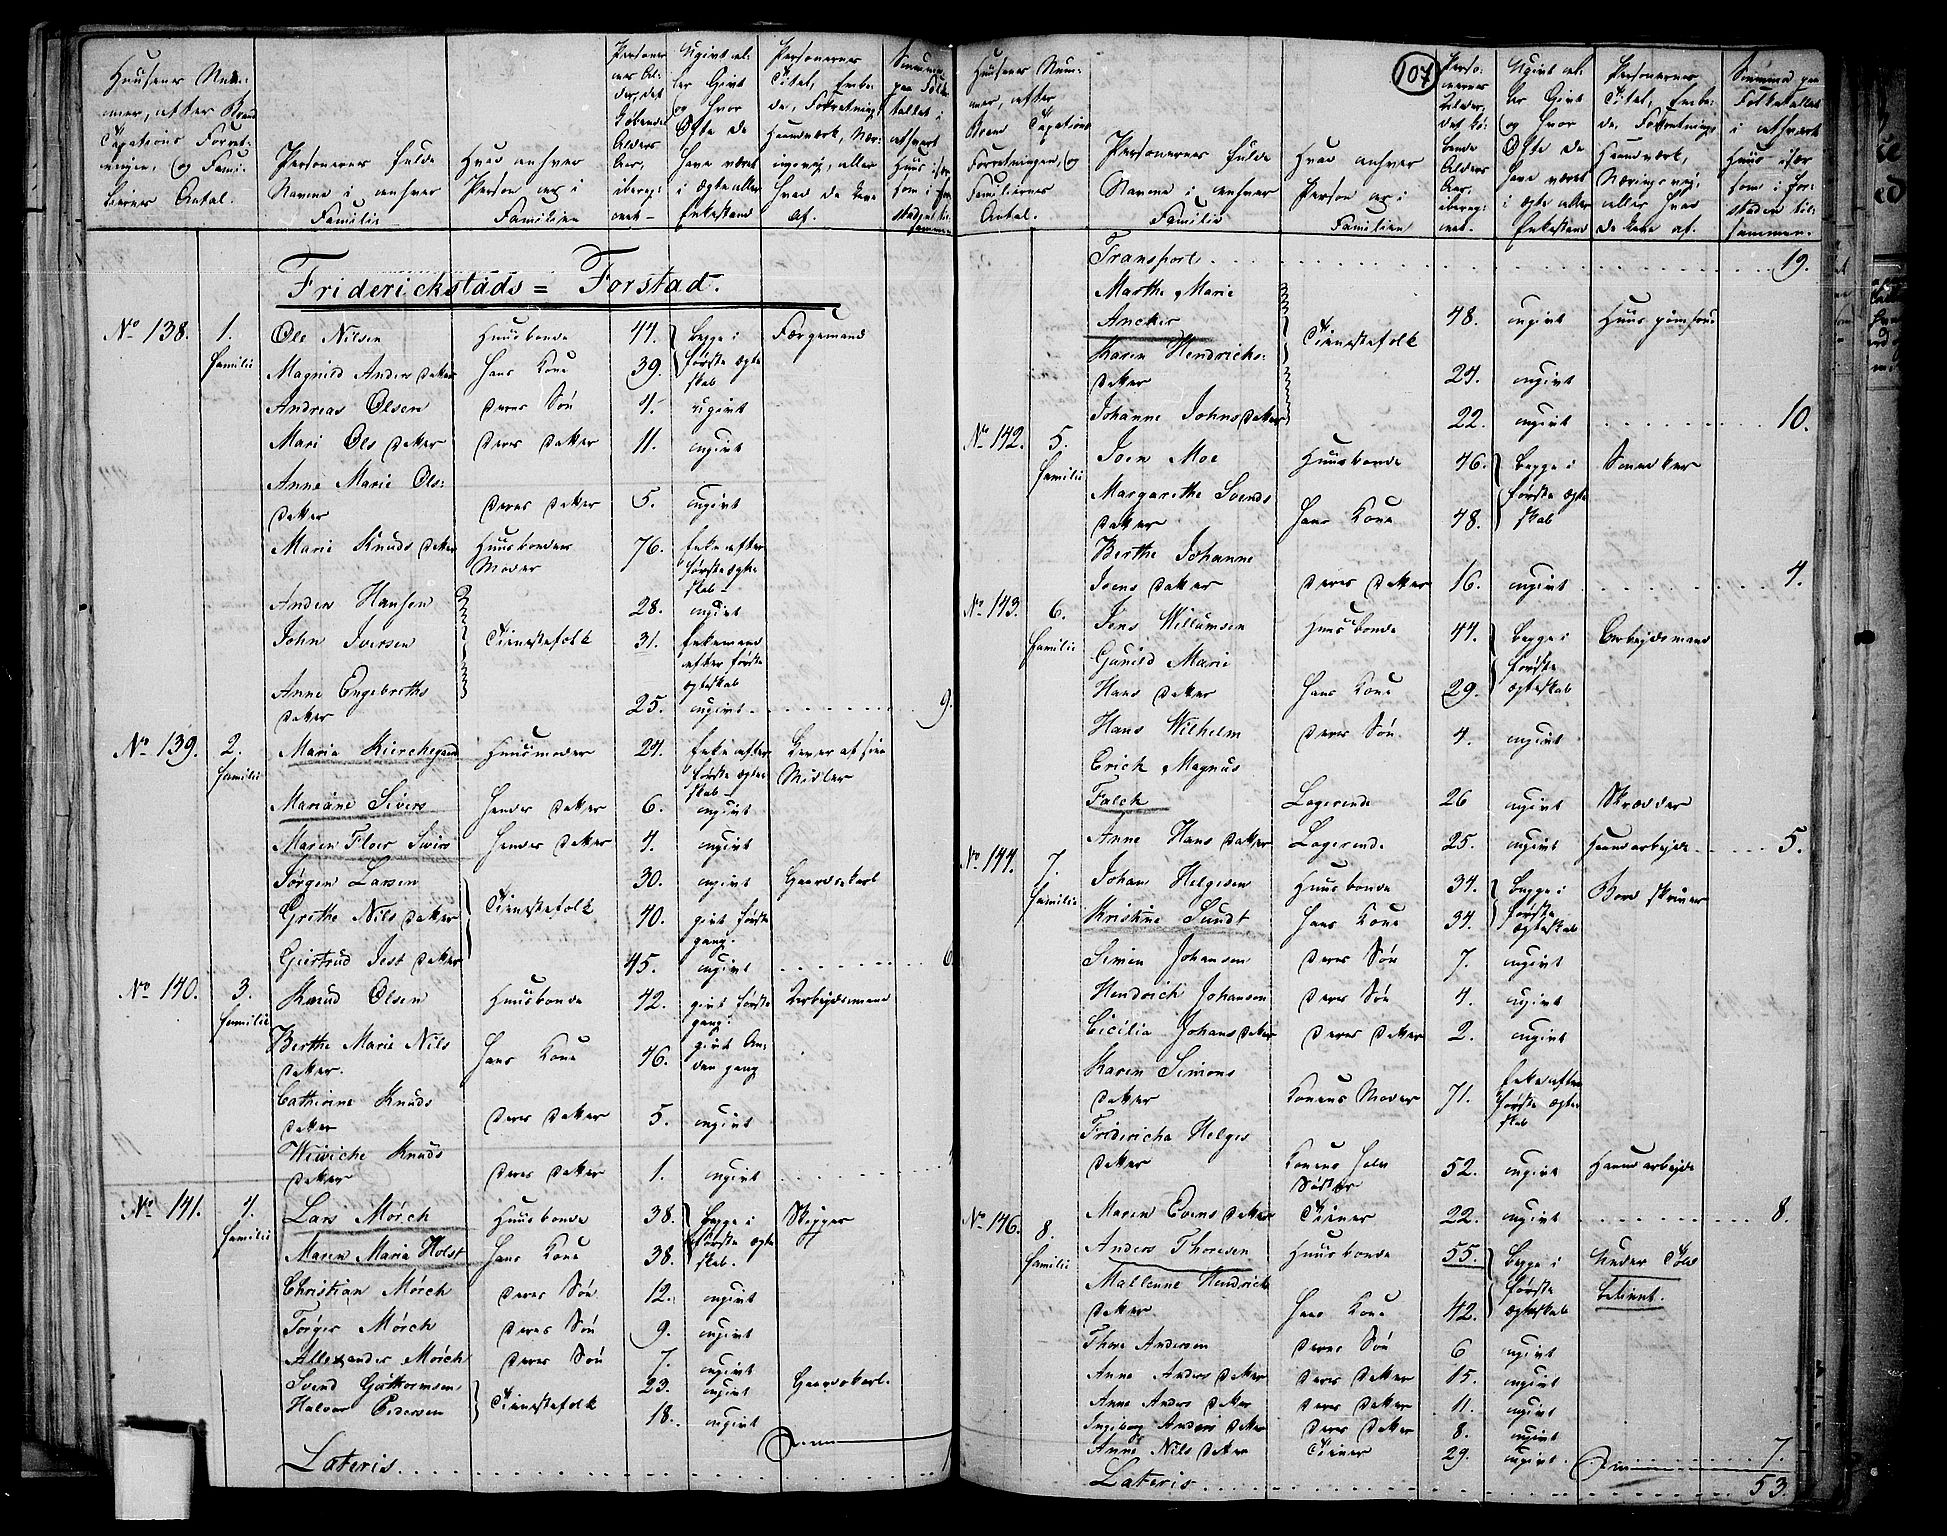 Huusenes Num-
mer, efter Brand
Taxations Forret-
ningen, og Fami-
liernes Antal.
Personernes fulde
Navne i enhver
Familie
Hvad enhver
Person er i
Familien
Fridericksstads = Forstad.
No 138. 1. Familie Ole Nilsen Huusbonde 44. begge i første Ægteskab Færgemand
Magnild Anders datter Hans Kone 39.
Andreas Olsen deres Søn 4. ugivt
Mari Ols datter deres datter 11. ugivt
Anne Marie Ols:
datter deres datter 5. ugivt
Marie Knuds datter Huusbondens Moder 76. Enke efter første Ægteskab
Anders Hansen 28. ugivt
John Iversen Tienestefolk 31. Enkemand efter første Ægteskab
Anne Engebreths
datter 25. ugivt 9.
No 139. 2. Familie Maria Kierchegaard Huusmoder 24. Enke efter første Ægteskab Lever af sine Midler
Mariane Sivers Hendes datter 6. ugivt
Maren Floer Sivers Hendes datter 4. ugivt
Jørgen Larsen 30. ugivt Gaardskarl
Grethe Nils datter Tienestefolk 40. givt første gang.
Giertrud Jest datter 45. ugivt 6
No 140. 3. Familie Knud Olsen Huusbonde 42. givt første gang. Arbejdsmand
Berthe Marie Nils
datter. Hans Kone 46. givt Anden gang
Cathrine Knuds
datter deres datter 5. ugivt
Wiwiche Knuds
datter deres datter 1. ugivt
No 141. 4. Familie Lars Mørch Huusbonde 38. begge i første Ægteskab. Skipper
Maren Maria Holst Hans Kone 38.
Christian Mørch deres Søn 12. ugivt
Torger Mørch deres Søn 9. ugivt
Allexander Mørch deres Søn 7. ugivt
Svend Guthormsen Tienestefolk 23. ugivt Gaardskarl.
Halvor Pedersen 18. ugivt
Lateris
107
Huusenes Num-
mer, efter
Brand Taxations
Forretningen, og
Familiernes
Antal.
Personernes fulde
Navne i enhver
Familie
Hvad enhver
Person er i
Familien
Transport 19.
Marthe Marie
Ancker Tienestefolk 48. ugivt
Karen Hendrichs:
datter 24. ugivt
Johanne Johns datter 22. ugivt 10.
No 142. 5. Familie Joen Moe Huusbonde 46. begge i første Ægteskab Snedker
Margarethe Svends
datter Hans Kone 48.
Berthe Johanne
Joens datter deres datter 16. ugivt 4.
No 143. 6. Familie Jens Willumsen Huusbonde 44. begge i første Ægteskab Arbejdsmand
Gunild Marie
Hans datter Hans Kone 29.
Hans Wilhelm deres Søn 4. ugivt
Erich Magnus
Falck Logerende 26 ugivt Skrædder
Anne Hans datter Logerende 25. ugivt Haandarbejde 5.
No 144. 7. Familie Johan Helgesen Huusbonde 34. begge i første Ægteskab Bordskriver
Kristine Sundt Hans Kone 34.
Simon Johansen deres Søn 7. ugivt
Hendrich Johansen deres Søn 4. ugivt
Cicilia Johans datter deres datter 2. ugivt
Karen Simons
datter Konens Moder 71. Enke efter første Ægteskab
Fridericha Helges
datter Konens Halv Søster 52. ugivt Haandarbejde
Maren Evens datter Tiener 22. ugivt 8.
No 146. 8. Familie Anders Thoresen Huusbonde 55. begge i første Ægteskab Under Told betient.
Mallenne Hendrichs
datter Hans Kone 42.
Thore Andersen deres Søn 6 ugivt
Anne Anders datter deres datter 15. ugivt
Anne Anders datter deres datter 11. ugivt
Ingeborg Anders datter deres datter 8. ugivt
Anne Nils datter Tiener 29. ugivt 7.
Lateris 53.